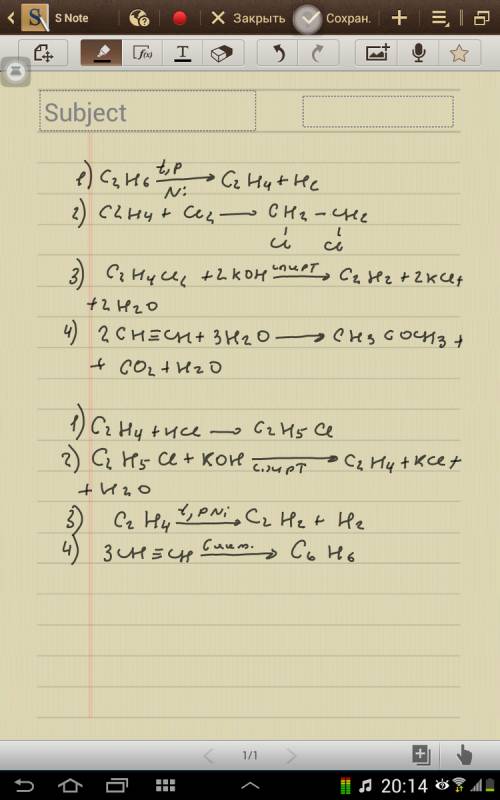 S Note
Закрыть
Сохран.
f(x)
T
Subject
1) C2H6 t,p Ni → C2H4 + H2
2) C2H4 + Cl2 → CH2 – CH2
Cl Cl
3) C2H4Cl2 + 2KOH спирт → C2H2 + 2KCl +
+ 2H2O
4) 2CH≡CH + 3H2O → CH3COCH3 +
+ CO2 + H2O
1) C2H4 + HCl → C2H5Cl
2) C2H5Cl + KOH спирт → C2H4 + KCl +
+ H2O
3) C2H4 t,p Ni → C2H2 + H2
4) 3CH≡CH → C6H6
1/1
20:14